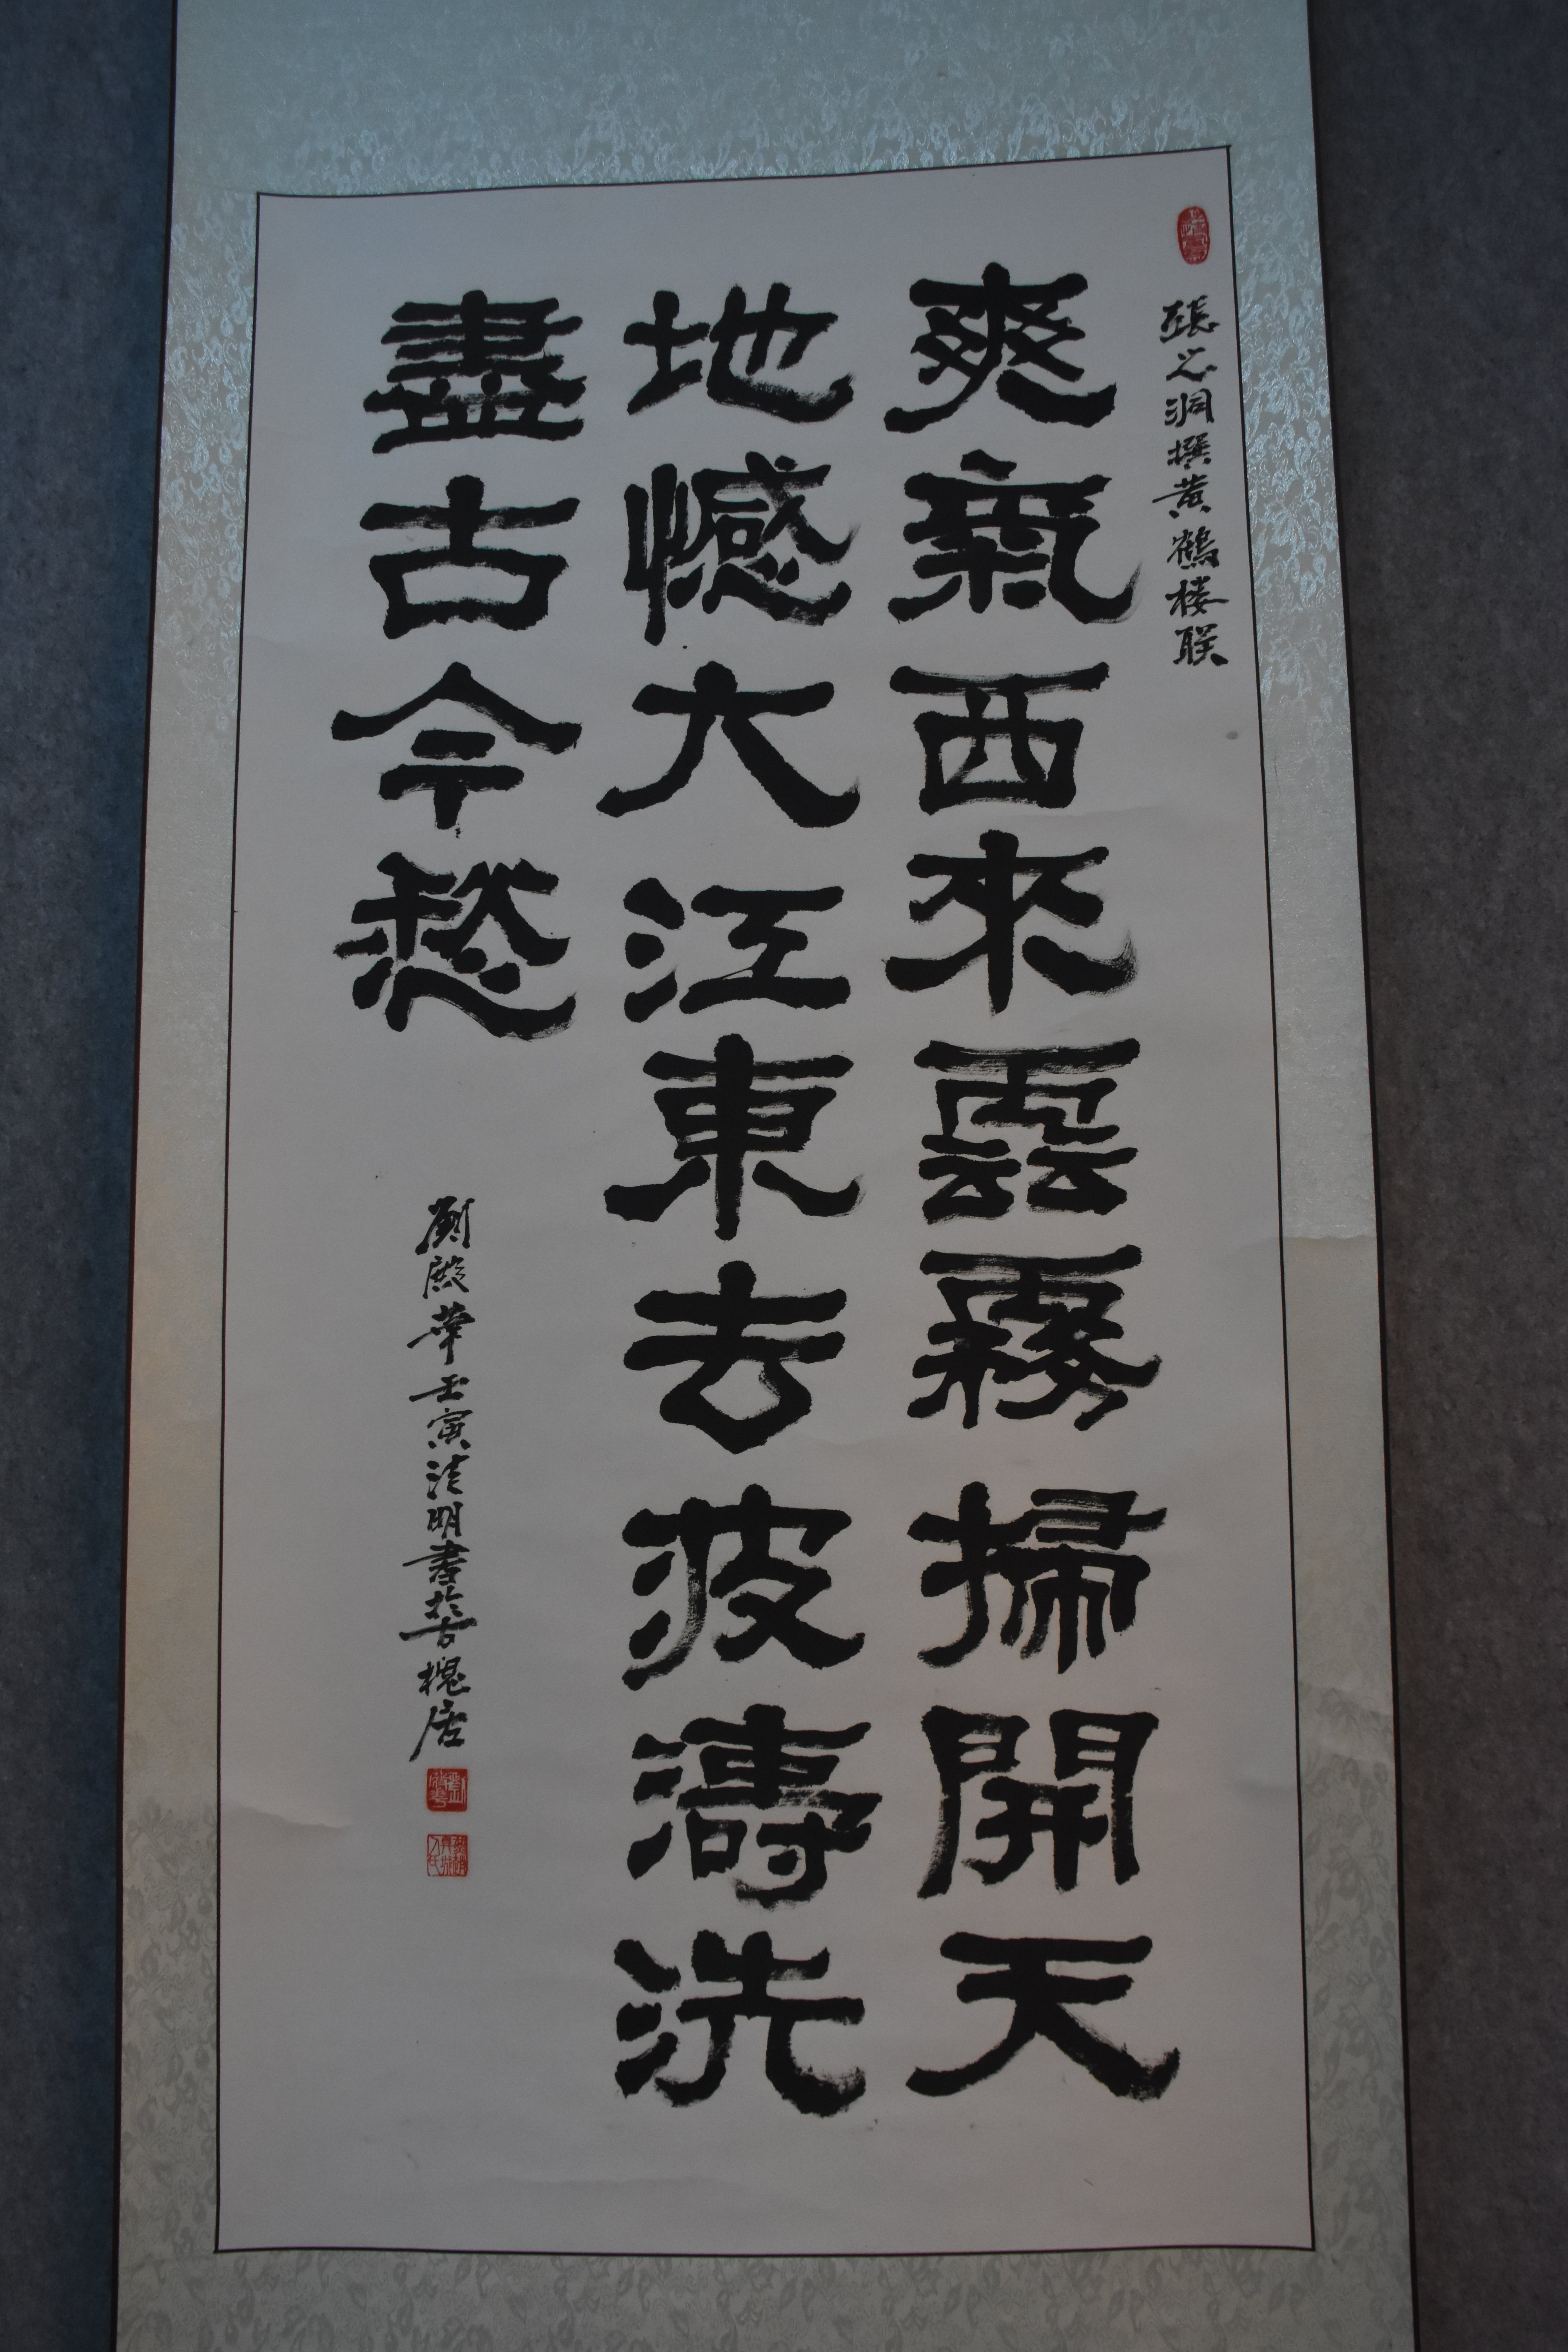 張之洞撰黄鶴楼联
爽氣西來雲霧掃開天
地憾大江東去波濤洗
盡古今愁
劉殿華壬寅清明書於古槐居